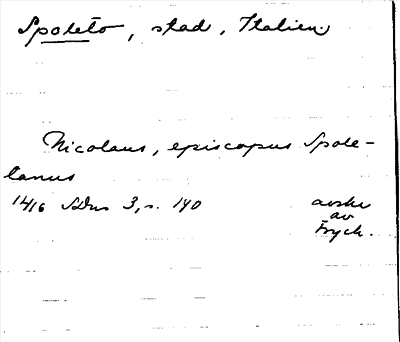 Spoleto, stad, Italien.
Nicolaus, episcopus Spole-
tanus
1416 SDns 3, s. 140
avskr
av
tryck.